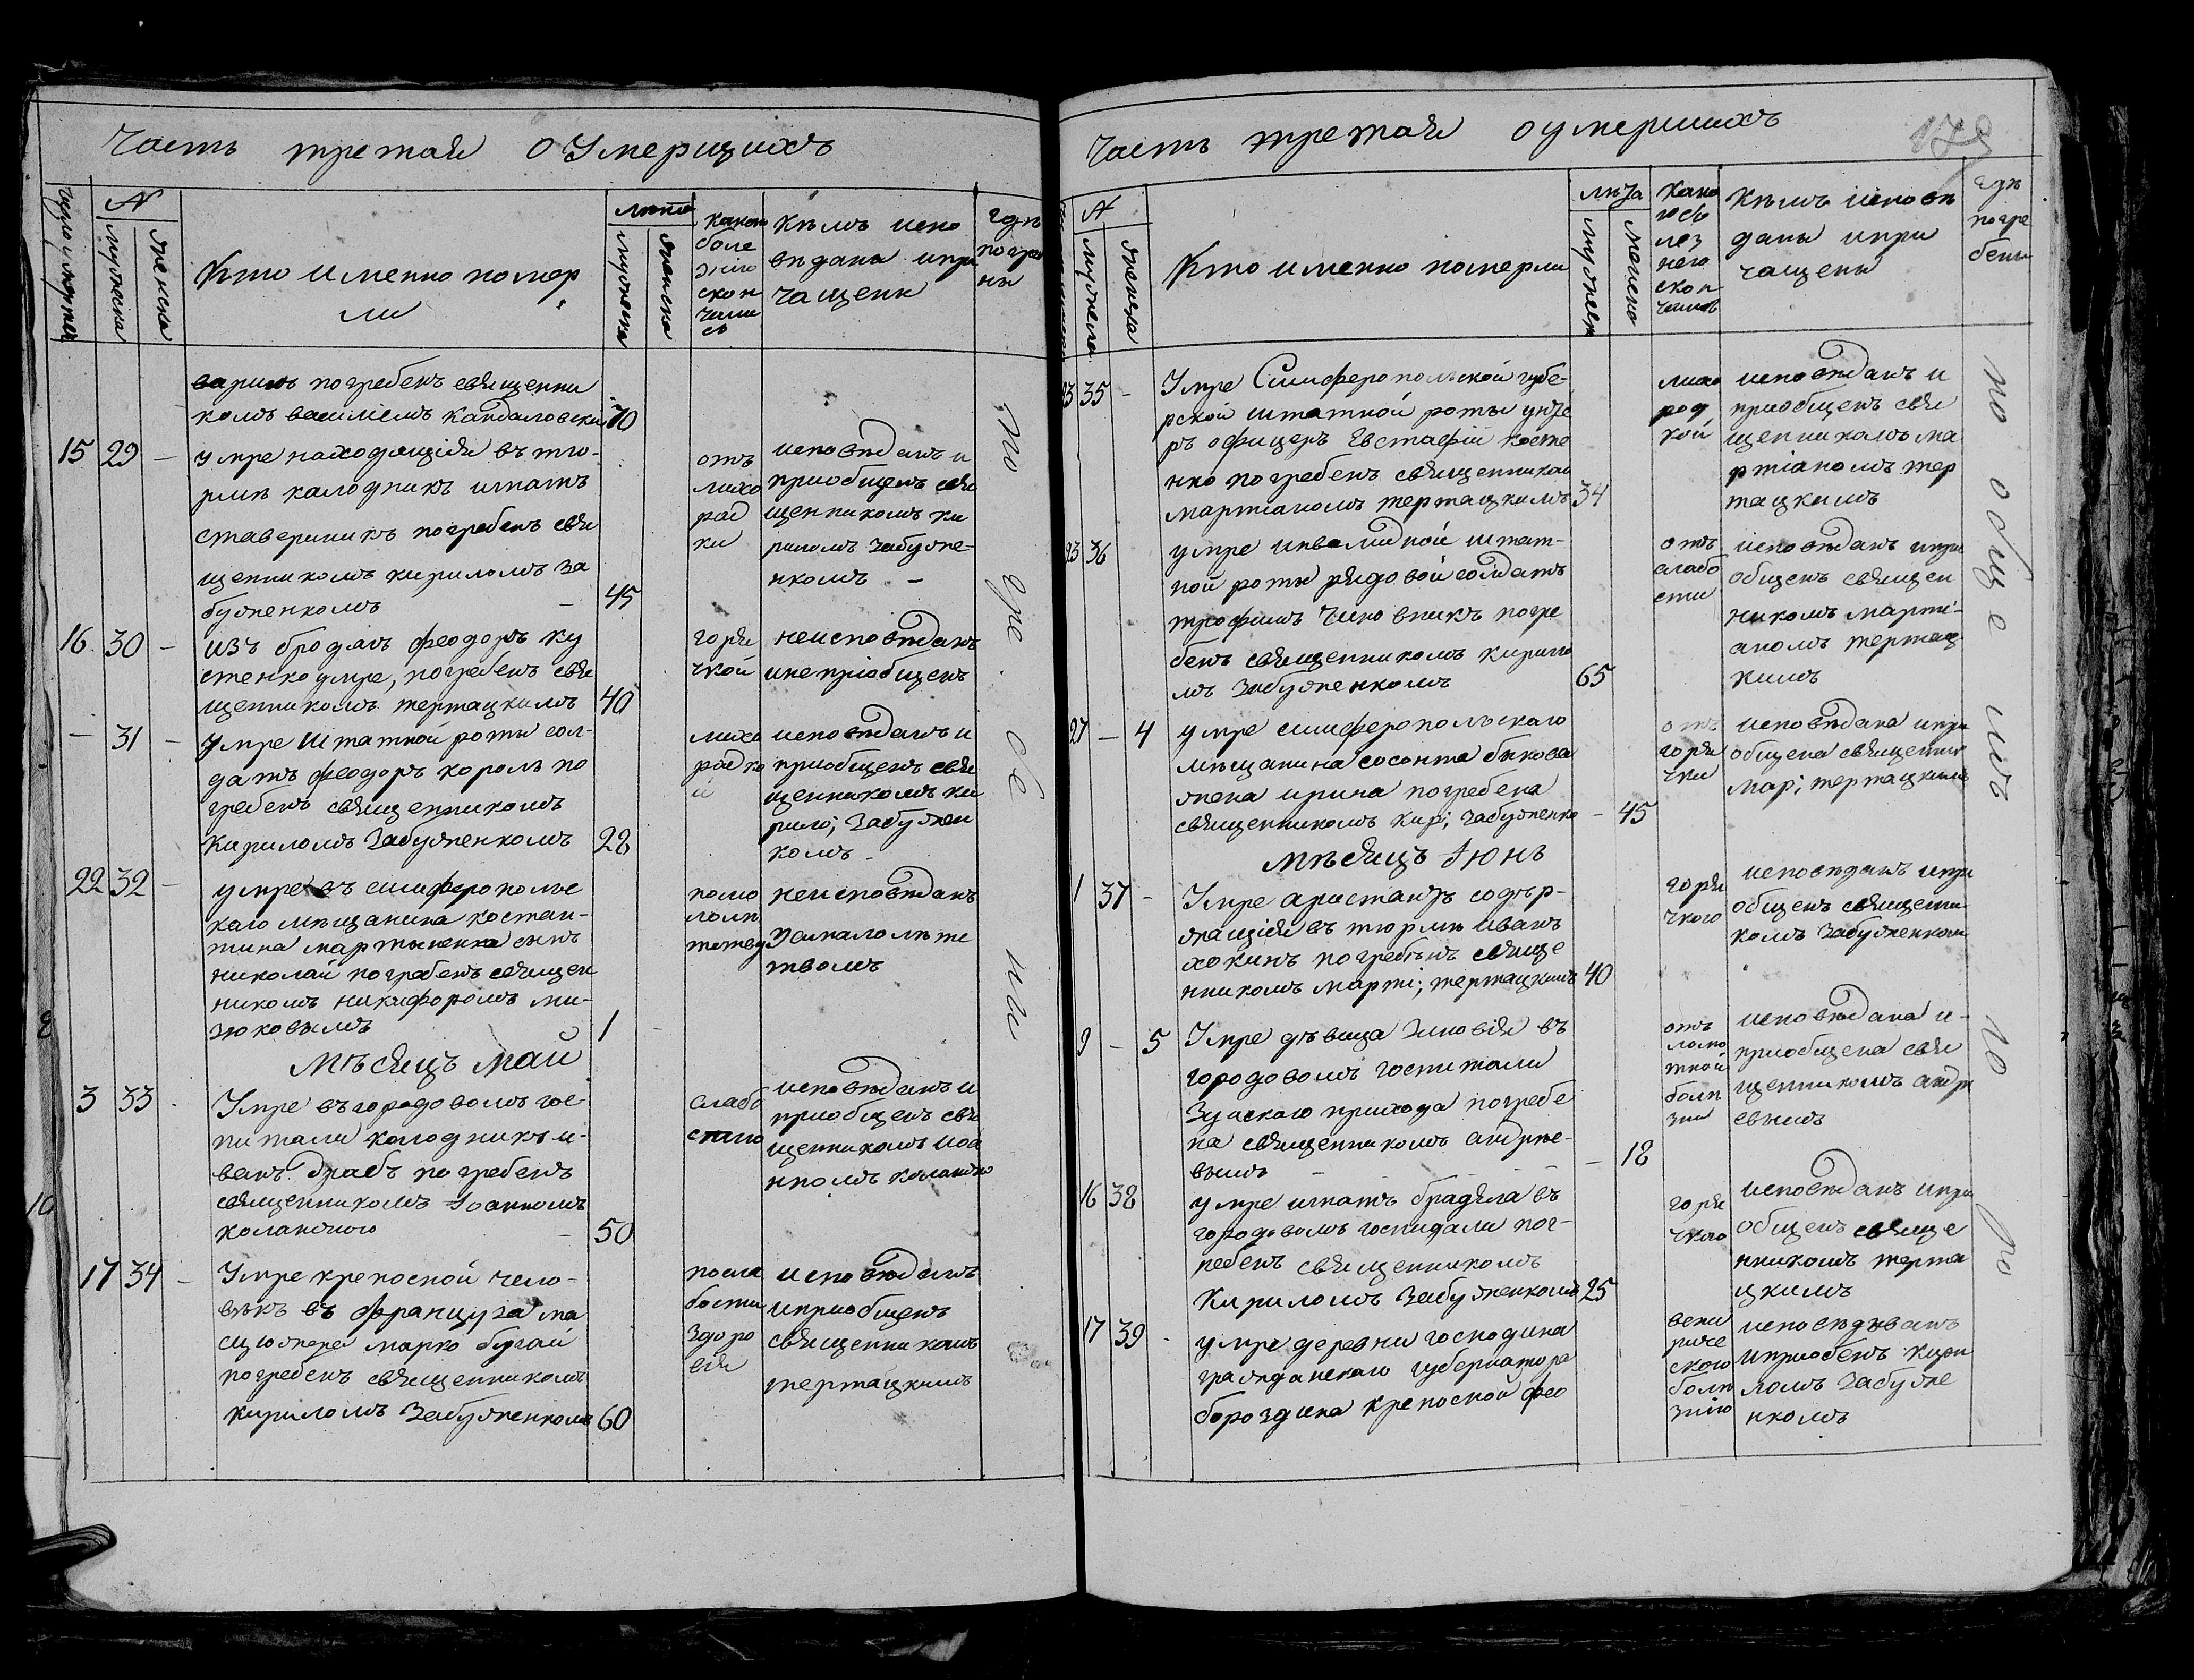 Часть третая оумерщихъ
число и мѣсяцъ
№
мужеска
женска
Кто именно помер
ли
лѣта
мужеска
женска
какою
боле
знію
скон
чали
сь
Кѣмъ испо
вѣданы и при
чащены
гдѣ
погребе
ны
варишъ погребенъ священни
комъ василіемъ Кандаловски 70
15 29 – умре находящійся въ тю-
рмѣ калодникъ игнатъ
ставершикъ погребенъ свя
щенникомъ кириломъ за
бужекомъ – 45
отъ
лихо
рад
ки
исповѣданъ и
приобщенъ свя
щенникомъ ки
риломъ забуже-
нкомъ –
16 30 – изъ бродягъ феодоръ ку
стенко умре, погребенъ свя
щенникомъ тертацкимъ 40
горя
чкой
неисповѣданъ
и неприобщенъ
– 31 – Умре Штатной роты сол-
датъ феодоръ король по
гребенъ священникомъ
Кириломъ Забуженкомъ 28
лихо
радко
й
исповѣданъ и
приобщенъ свя
щенникомъ ки
рило; Забужен
комъ –
22 32 – умре въ симферополе
каго мѣщанина костан-
тина мартыненка сынъ
николай погребенъ священ
никомъ никифоромъ ми-
зюковымъ 1
неисповѣданъ
за малолѣтс
твомъ
Мѣсяцъ май
3 33 Умре въ городовомъ гос-
питали колодникъ и-
ванъ драбъ погребенъ
священникомъ Іоанномъ
коланского – 50
слабо
стію
исповѣданъ и
приобщенъ свя
щенникомъ иоа
нномъ
17 34 – Умре крепосной чело-
вѣкъ въ француза ма
марко бугай
погребенъ священникомъ
Кириломъ Забуженкомъ 60
посла
бости
здоро
вія
исповѣданъ
и приобщенъ
священникомъ
тертацкимъ
Часть третая оумершихъ
175
№
мужеска
женска
Кто именно померли
лѣта
мужеск
женско
Кѣмъ исповѣ
даны и при
чащены
гдѣ
погре
бены
23 35 – Умре Симферопольской губе-
рской штатной роты унте
ръ офицеръ Евстафій косте
нко погребенъ священником
мартіаномъ тертацкимъ 34
лихо
рад
кой
исповѣданъ и
приобщенъ свя
щенникомъ ма
ртіаномъ тер
тацкимъ
23 36 умре инвалидной штат-
ной роты рядовой солдатъ
трофимъ Чиновникъ погре
бенъ священникомъ кирило
мъ забуженкомъ 65
отъ
слабо
сти
исповѣданъ и при
общенъ священ
никомъ марти-
аномъ тертац
кимъ
27 – 4 умре симферопольскаго
мѣщанина сосонта быкова
жена ирина погребена
священникомъ кирі; забуженко – 45
отъ
горя
чки
исповѣдана и при
общена священник
марі; тертацкимъ
Мѣсяцъ Іюнь
1 37 – Умре арестантъ содер-
жащійся въ тюрмѣ иванъ
хокинъ погребенъ свяще
нникомъ марті; тертацкимъ 40
горя
чкою
исповѣданъ и при
общенъ священни
комъ забуженком
9 – 5 Умре дѣвица Зиновія въ
городовомъ госпитали
Зуйскаго прихода погребе
на священникомъ андрѣе-
вымъ – – 18
отъ
ломо
тной
болѣ
зни
исповѣдана и
приобщена свя
щенникомъ андре
евымъ
16 38 умре игнатъ брадяга въ
городовомъ госпидали пог-
ребенъ священникомъ
Кириломъ Забуженкомъ 25
горя
чкою
исповѣданъ и при
общенъ свяще
нникомъ терта
цкимъ
17 39 умре деревни господина
гражданскаго губернатора
бороздина крепосной фео
вене
риче
скою
болѣ
знію
исповѣдованъ
и приобенъ кири
ломъ забуже
нкомъ